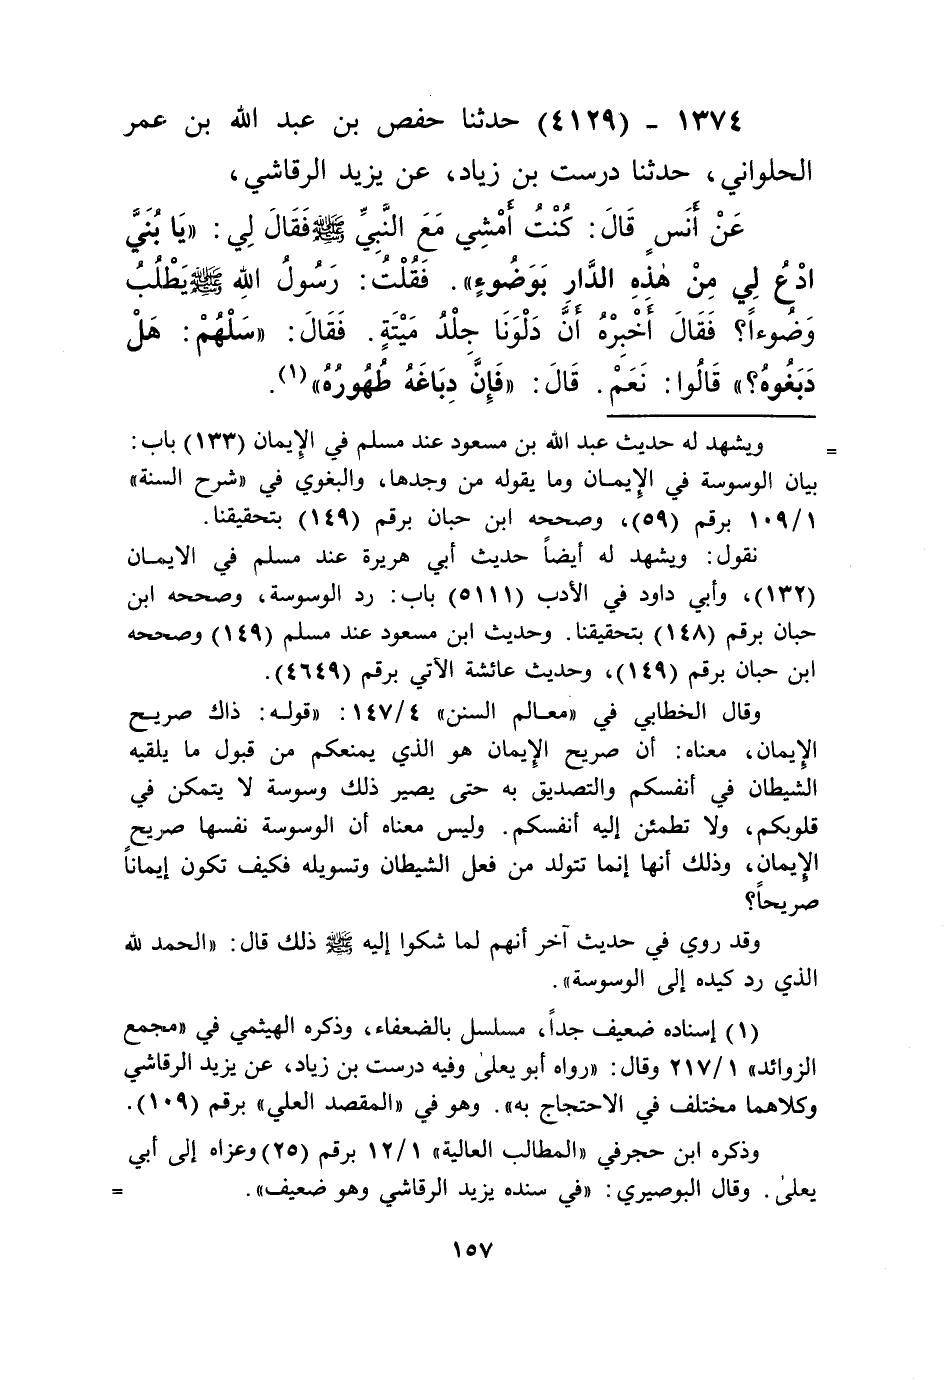 ١٣٧٤ - (٤١٢٩) حدثنا حفص بن عبد الله بن عمر
الحلواني، حدثنا درست بن زياد، عن يزيد الرقاشي،
عَنْ أَنَسٍ قَالَ: كُنْتُ أَمْشِي مَعَ النَّبِيِّ ﷺ فَقَالَ لِي: «يَا بُنَيَّ
ادْعُ لِي مِنْ هٰذِهِ الدَّارِ بَوَضُوءٍ». فَقُلْتُ: رَسُولُ اللهِ ﷺ يَطْلُبُ
وَضُوءاً؟ فَقَالَ أَخْبِرْهُ أَنَّ دَلْوَنَا جِلْدُ مَيْتَةٍ. فَقَالَ: «سَلْهُمْ: هَلْ
دَبَغُوهُ؟» قَالُوا: نَعَمْ. قَالَ: «فَإِنَّ دِبَاغَهُ طُهُورُهُ»(١).
= ويشهد له حديث عبد الله بن مسعود عند مسلم في الإيمان (١٣٣) باب:
بيان الوسوسة في الإيمان وما يقوله من وجدها، والبغوي في «شرح السنة»
١٠٩/١ برقم (٥٩)، وصححه ابن حبان برقم (١٤٩) بتحقيقنا.
نقول: ويشهد له أيضاً حديث أبي هريرة عند مسلم في الايمان
(١٣٢)، وأبي داود في الأدب (٥١١١) باب: رد الوسوسة، وصححه ابن
حبان برقم (١٤٨) بتحقيقنا. وحديث ابن مسعود عند مسلم (١٤٩) وصححه
ابن حبان برقم (١٤٩)، وحديث عائشة الآتي برقم (٤٦٤٩).
وقال الخطابي في «معالم السنن» ١٤٧/٤: «قوله: ذاك صريح
الإيمان، معناه: أن صريح الإيمان هو الذي يمنعكم من قبول ما يلقيه
الشيطان في أنفسكم والتصديق به حتى يصير ذلك وسوسة لا يتمكن في
قلوبكم، ولا تطمئن إليه أنفسكم. وليس معناه أن الوسوسة نفسها صريح
الإيمان، وذلك أنها إنما تتولد من فعل الشيطان وتسويله فكيف تكون إيماناً
صريحاً؟
وقد روي في حديث آخر أنهم لما شكوا إليه ﷺ ذلك قال: «الحمد لله
الذي رد كيده إلى الوسوسة».
(١) إسناده ضعيف جداً، مسلسل بالضعفاء، وذكره الهيثمي في «مجمع
الزوائد» ٢١٧/١ وقال: «رواه أبو يعلىٰ وفيه درست بن زياد، عن يزيد الرقاشي
وكلاهما مختلف في الاحتجاج به». وهو في «المقصد العلي» برقم (١٠٩).
وذكره ابن حجرفي «المطالب العالية» ١٢/١ برقم (٢٥) وعزاه إلى أبي
يعلىٰ. وقال البوصيري: «في سنده يزيد الرقاشي وهو ضعيف». =
١٥٧